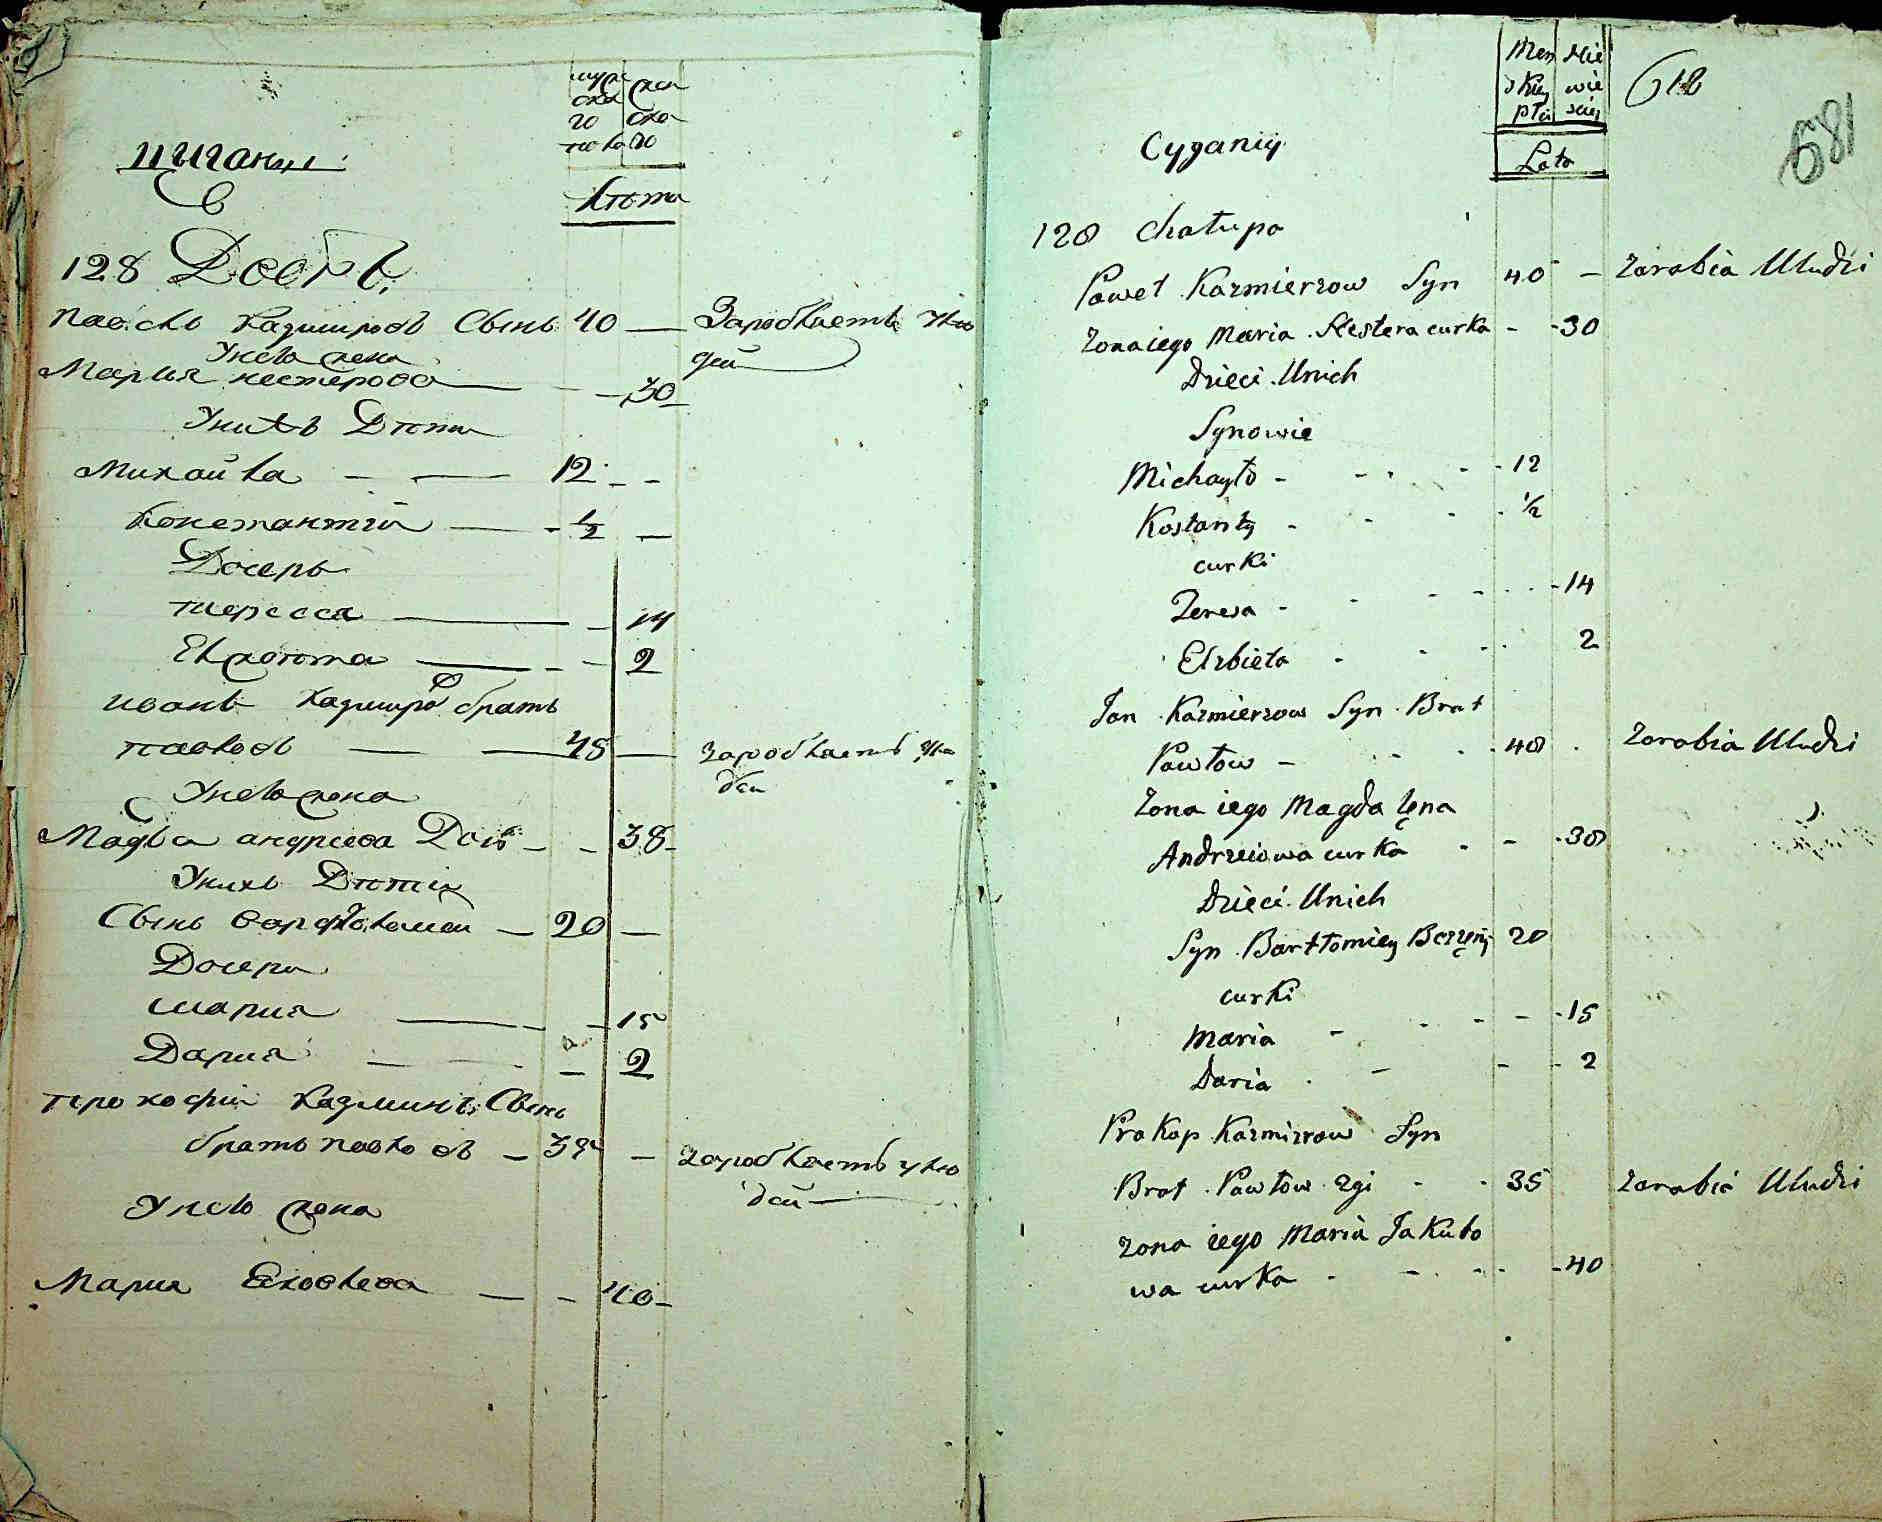 цыганы
мужескаго пола
женскаго
Лѣта
128 Дворъ
Павелъ Казимировъ Сынъ 40 — Заробляетъ улю
дей
У него жена
Мария нестерова — 30
У нихъ Дѣти
Михайла — 12 —
Константий — ½ —
Дочерь
тересса — 14
Елжбета — 2
иванъ казимиров братъ
павловъ — 48 — заробляетъ улю
дей
У него жена
Магда андреева Дочь — 38
У нихъ Дѣти
Сынъ варфоломей — 20 —
Дочери
мария — 15
Дария — 2
прокофий Казимировъ Сынъ
братъ павловъ — 35 — заробляетъ улю
дей
У него жена
Мария Яковлева — 40
Męz Nie
skiey wie
płci skiey
Lata
612
681
Cyganiy
128 Chałupa
Paweł Kazmierzow Syn 40 — Zarabia Uludzi
Zona iego Maria Nestera curka - - 30
Dzieci Unich
Synowie
Michayło - - - 12
Kostanty - - - ½
curki
Teresa - - - 14
Elzbieta - - - 2
Jan Kazmierzow Syn Brat
Pawłow - - - 48 Zarabia Uludzi
Zona iego Magdalęna
Andrzeiowa curka - - - 38
Dzieci Unich
Syn Bartłomiey 20
curki
Maria - - - 15
Daria - - - 2
Prokop Kazmirzow Syn
Brat Pawłow - - 35 Zarabia Uludzi
Zona iego Maria Jakubo
wa curka - - - 40